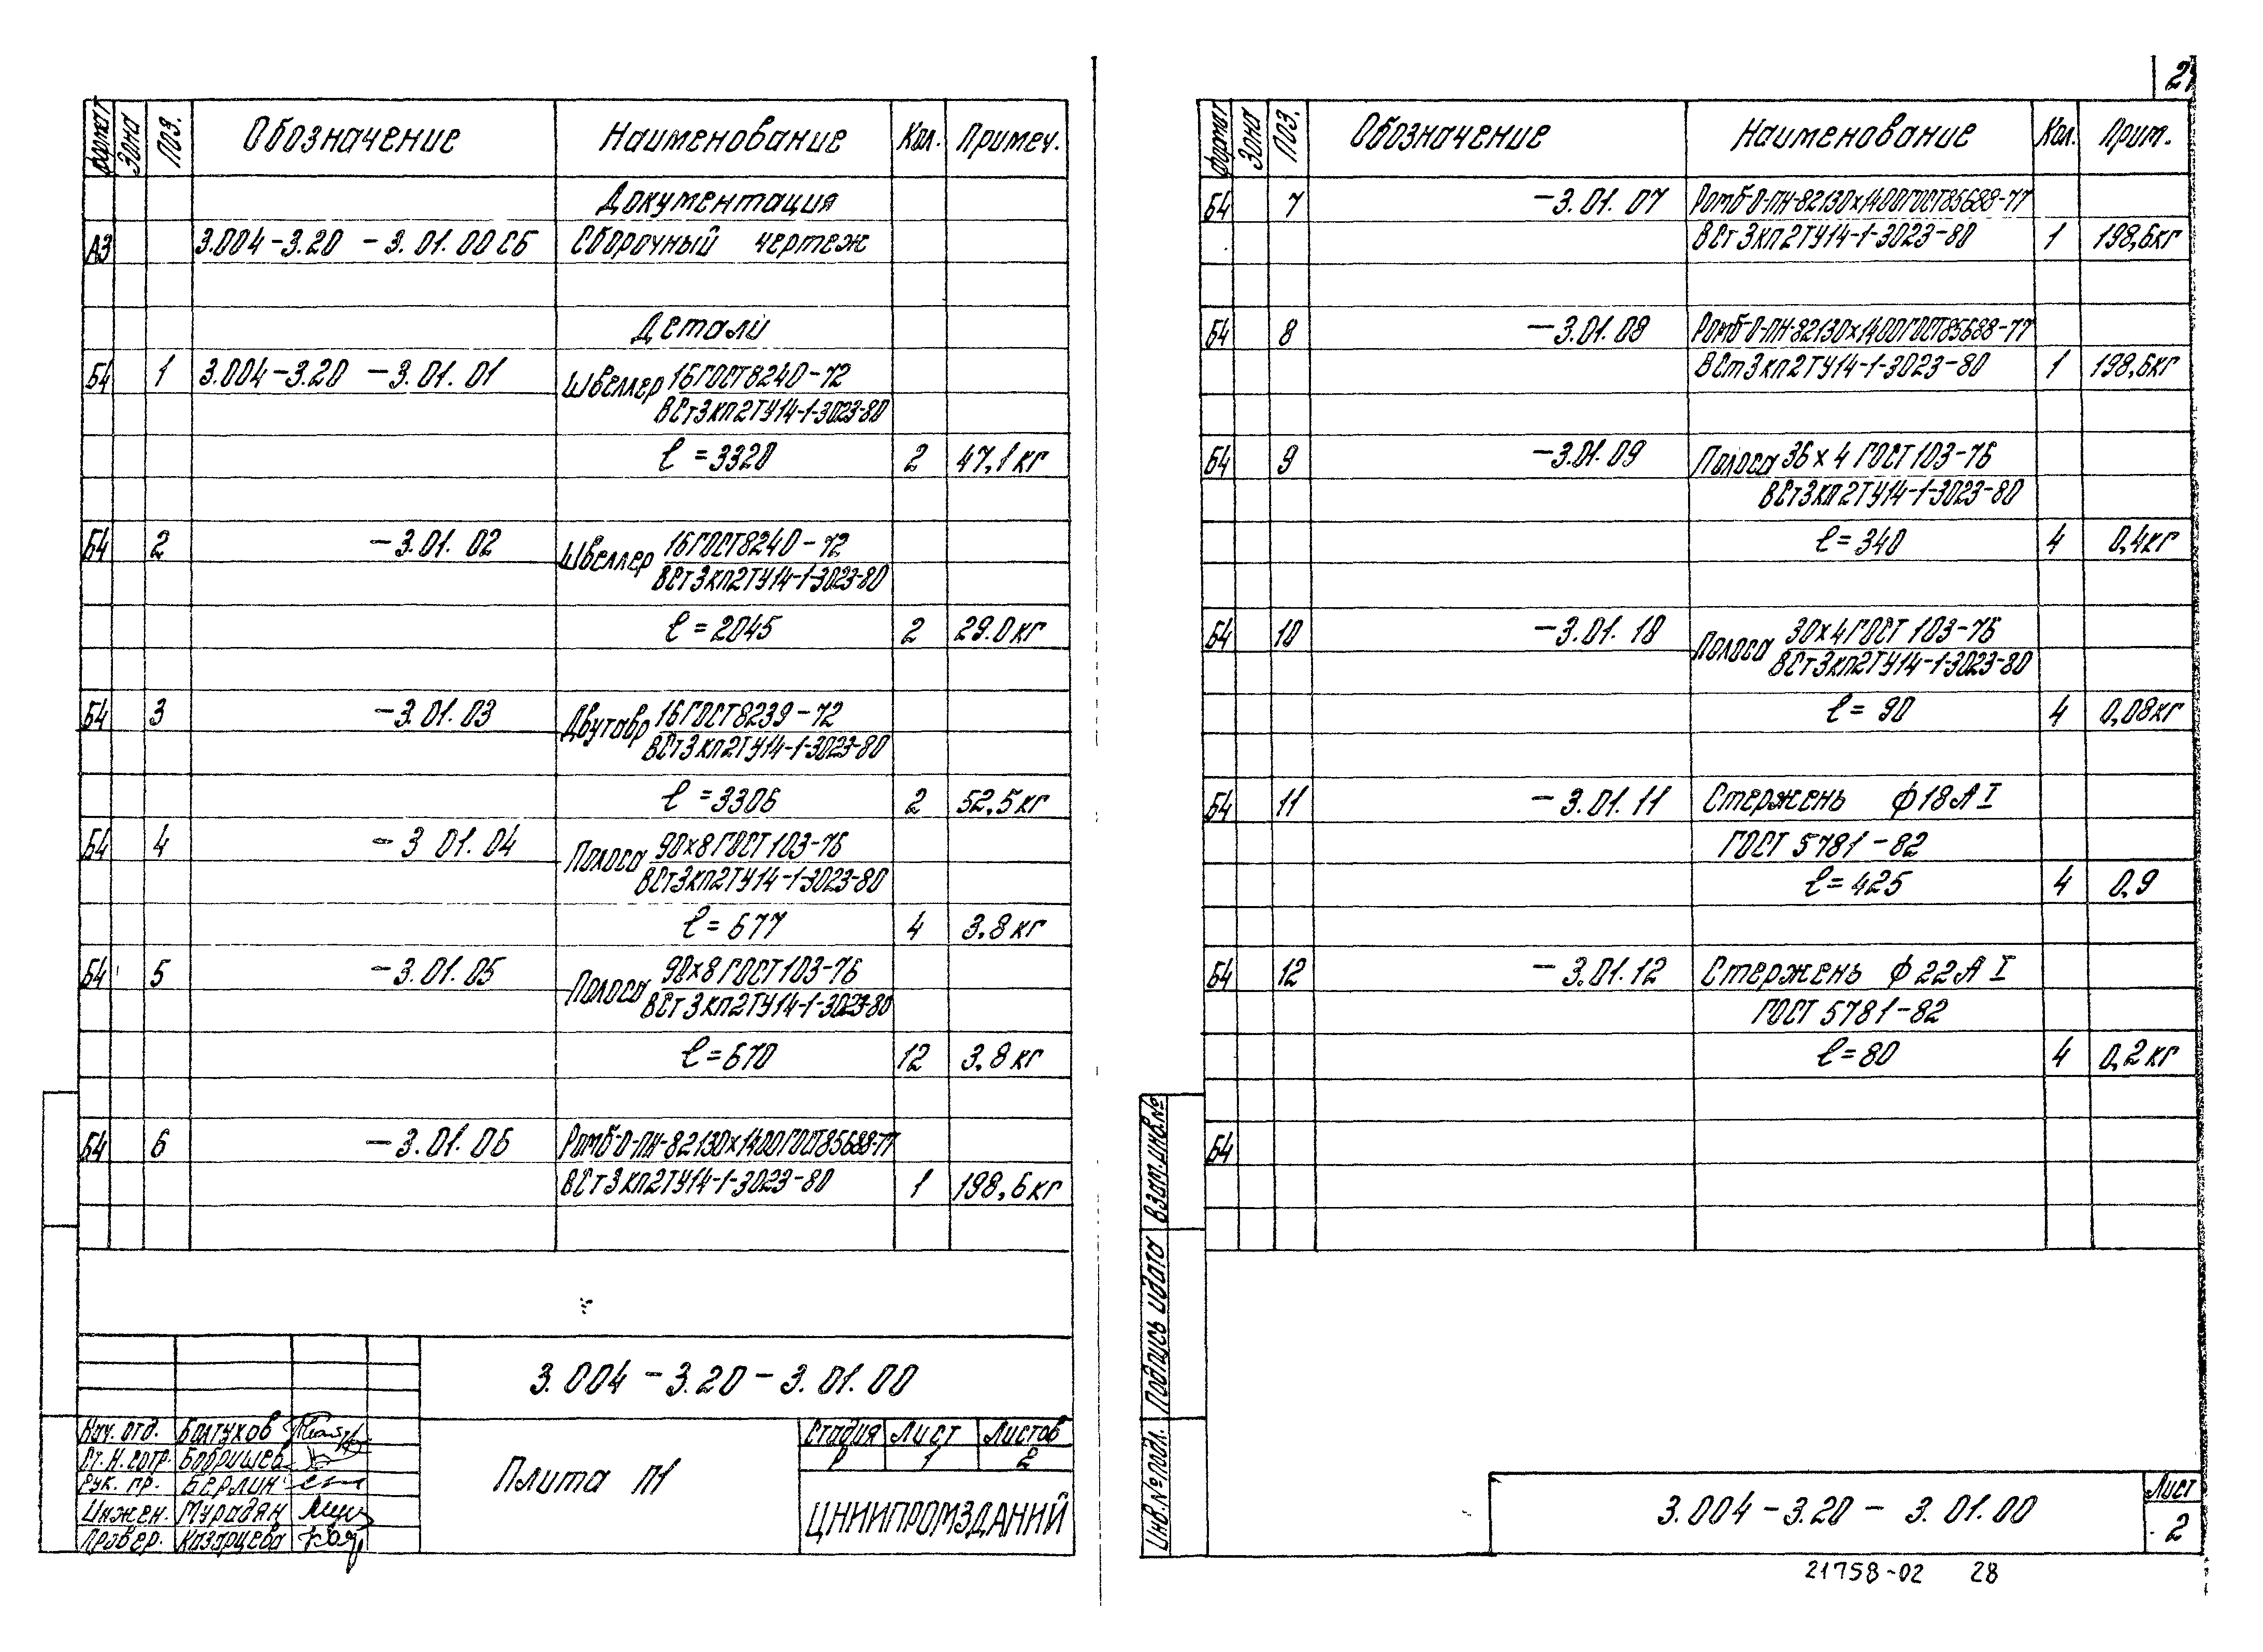 формат Зона Поз. Обозначение Наименование Кол. Примеч.
Документация
А3 3.004-3.20 -3.01.00СБ Сборочный чертеж
Детали
Б4 1 3.004-3.20 -3.01.01 Швеллер 16ГОСТ8240-72
ВСт3кп2ТУ14-1-3023-80
ℓ=3320 2 47,1кг
Б4 2 -3.01.02 Швеллер 16ГОСТ8240-72
ВСт3кп2ТУ14-1-3023-80
ℓ=2045 2 29.0кг
Б4 3 -3.01.03 Двутавр 16ГОСТ8239-72
ВСт3кп2ТУ14-1-3023-80
ℓ=3306 2 52,5кг
Б4 4 -3 01.04 Полоса 90х8ГОСТ103-76
ВСт3кп2ТУ14-1-3023-80
ℓ=677 4 3.8кг
Б4 5 -3.01.05 Полоса 90х8ГОСТ103-76
ВСт3кп2ТУ14-1-3023-80
ℓ=670 12 3.8кг
Б4 6 -3.01.06 Ромб-О-ПН-8х2130х1400ГОСТ85688-77
ВСт3кп2ТУ14-1-3023-80 1 198,6кг
3.004-3.20-3.01.00
Нач. отд. Болтухов
Ст.н.сотр. Бобришев
Рук. гр. Берлин
Инжен. Мурадян
Провер. Казарцева
Плита П1
Стадия Лист Листов
Р 1 2
ЦНИИПРОМЗДАНИЙ
2
формат Зона Поз. Обозначение Наименование Кол. Прим.
Б4 7 -3.01.07 Ромб-О-ПН-8х2130х1400ГОСТ85688-77
ВСт3кп2ТУ14-1-3023-80 1 198,6кг
Б4 8 -3.01.08 Ромб-О-ПН-8х2130х1400ГОСТ85688-77
ВСт3кп2ТУ14-1-3023-80 1 198,6кг
Б4 9 -3.01.09 Полоса 36х4 ГОСТ103-76
ВСт3кп2ТУ14-1-3023-80
ℓ=340 4 0,4кг
Б4 10 -3.01.10 Полоса 30х4ГОСТ103-76
ВСт3кп2ТУ14-1-3023-80
ℓ=90 4 0,08кг
Б4 11 -3.01.11 Стержень ф18АI
ГОСТ 5781-82
ℓ=425 4 0,9
Б4 12 -3.01.12 Стержень ф22АI
ГОСТ 5781-82
ℓ=80 4 0,2кг
Б4
Взам.инв.№
Подпись и дата
Инв.№ подл.
3.004-3.20-3.01.00
Лист
2
21758-02 28